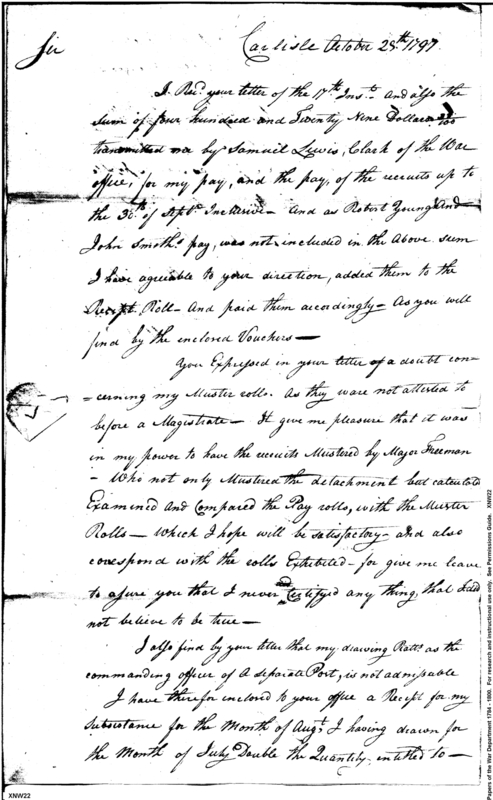 Sir Carlisle October 28th 1797
I Recd your letter of the 17th Inst and also the
sum of four hundred and Twenty Nine Dollars
transmitted me by Samuel Lewis, Clark of the War
office, for my pay, and the pay, of the recruits up to
the 30th of Septr Inclusive - And as Robert Young And
John Smiths pay, was not included in the above sum
I have agreeable to your direction, added them to the
Receipt Roll - And paid them accordingly - As you will
find by the inclosed Vouchers -
You Expressed in your letter of a doubt con-
-cerning my Muster rolls. As they ware not attested to
before a Magistrate - It give me pleasure that it was
in my power to have the recruits Mustered by Major Freeman
- Who not only Mustered the detachment but
Examined and Compared the Pay rolls, with the Muster
Rolls - which I hope will be satisfactory - and also
corespond with the rolls Exhibited - for give me leave
to asure you that I never Certifyed any thing that I did
not believe to be true -
I also find by your letter that my drawing Rats as the
commanding officer of A separate Post, is not admisable
I have therefor inclosed to your office a Receipt for my
Subsistance for the Month of Augt I having drawn for
the Month of July Double the Quantity intitled to -
XNW22
Papers of the War Department 1784 - 1800. For research and instructional use only. See Permissions Guide. XNW22